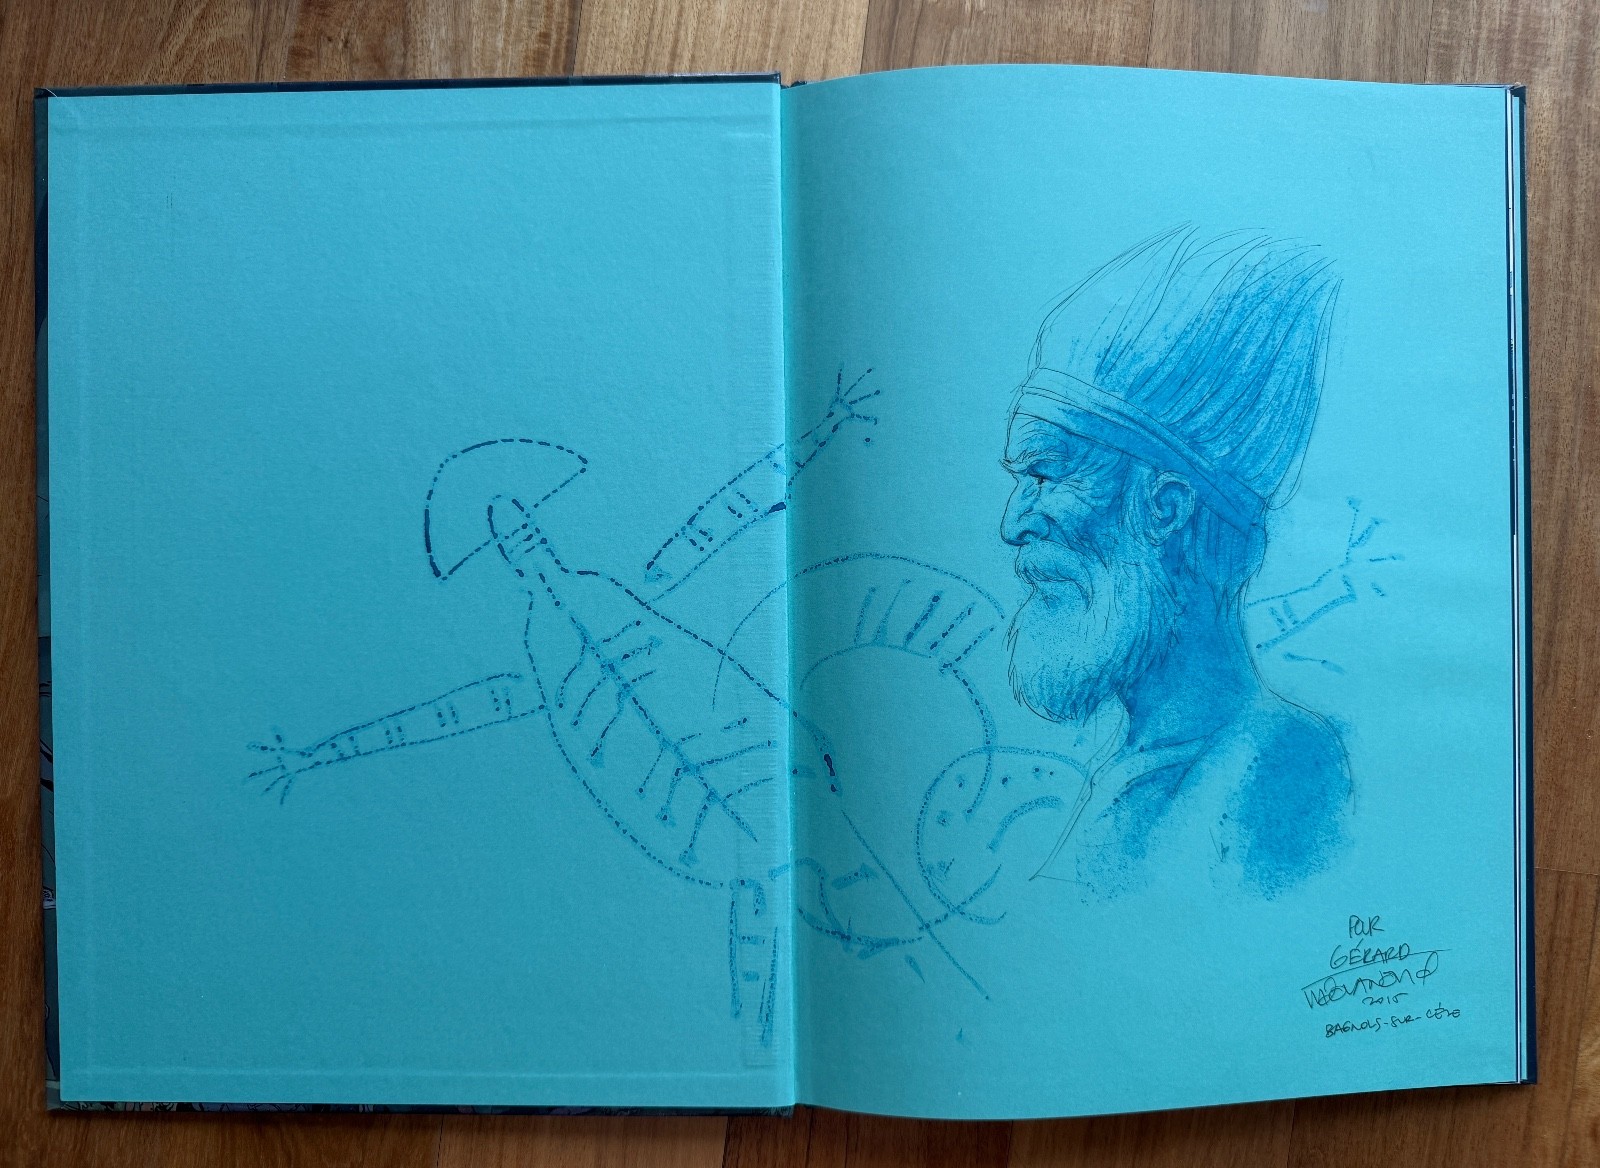 POUR
GÉRARD
2015
BAGNOLS-SUR-CÈZE